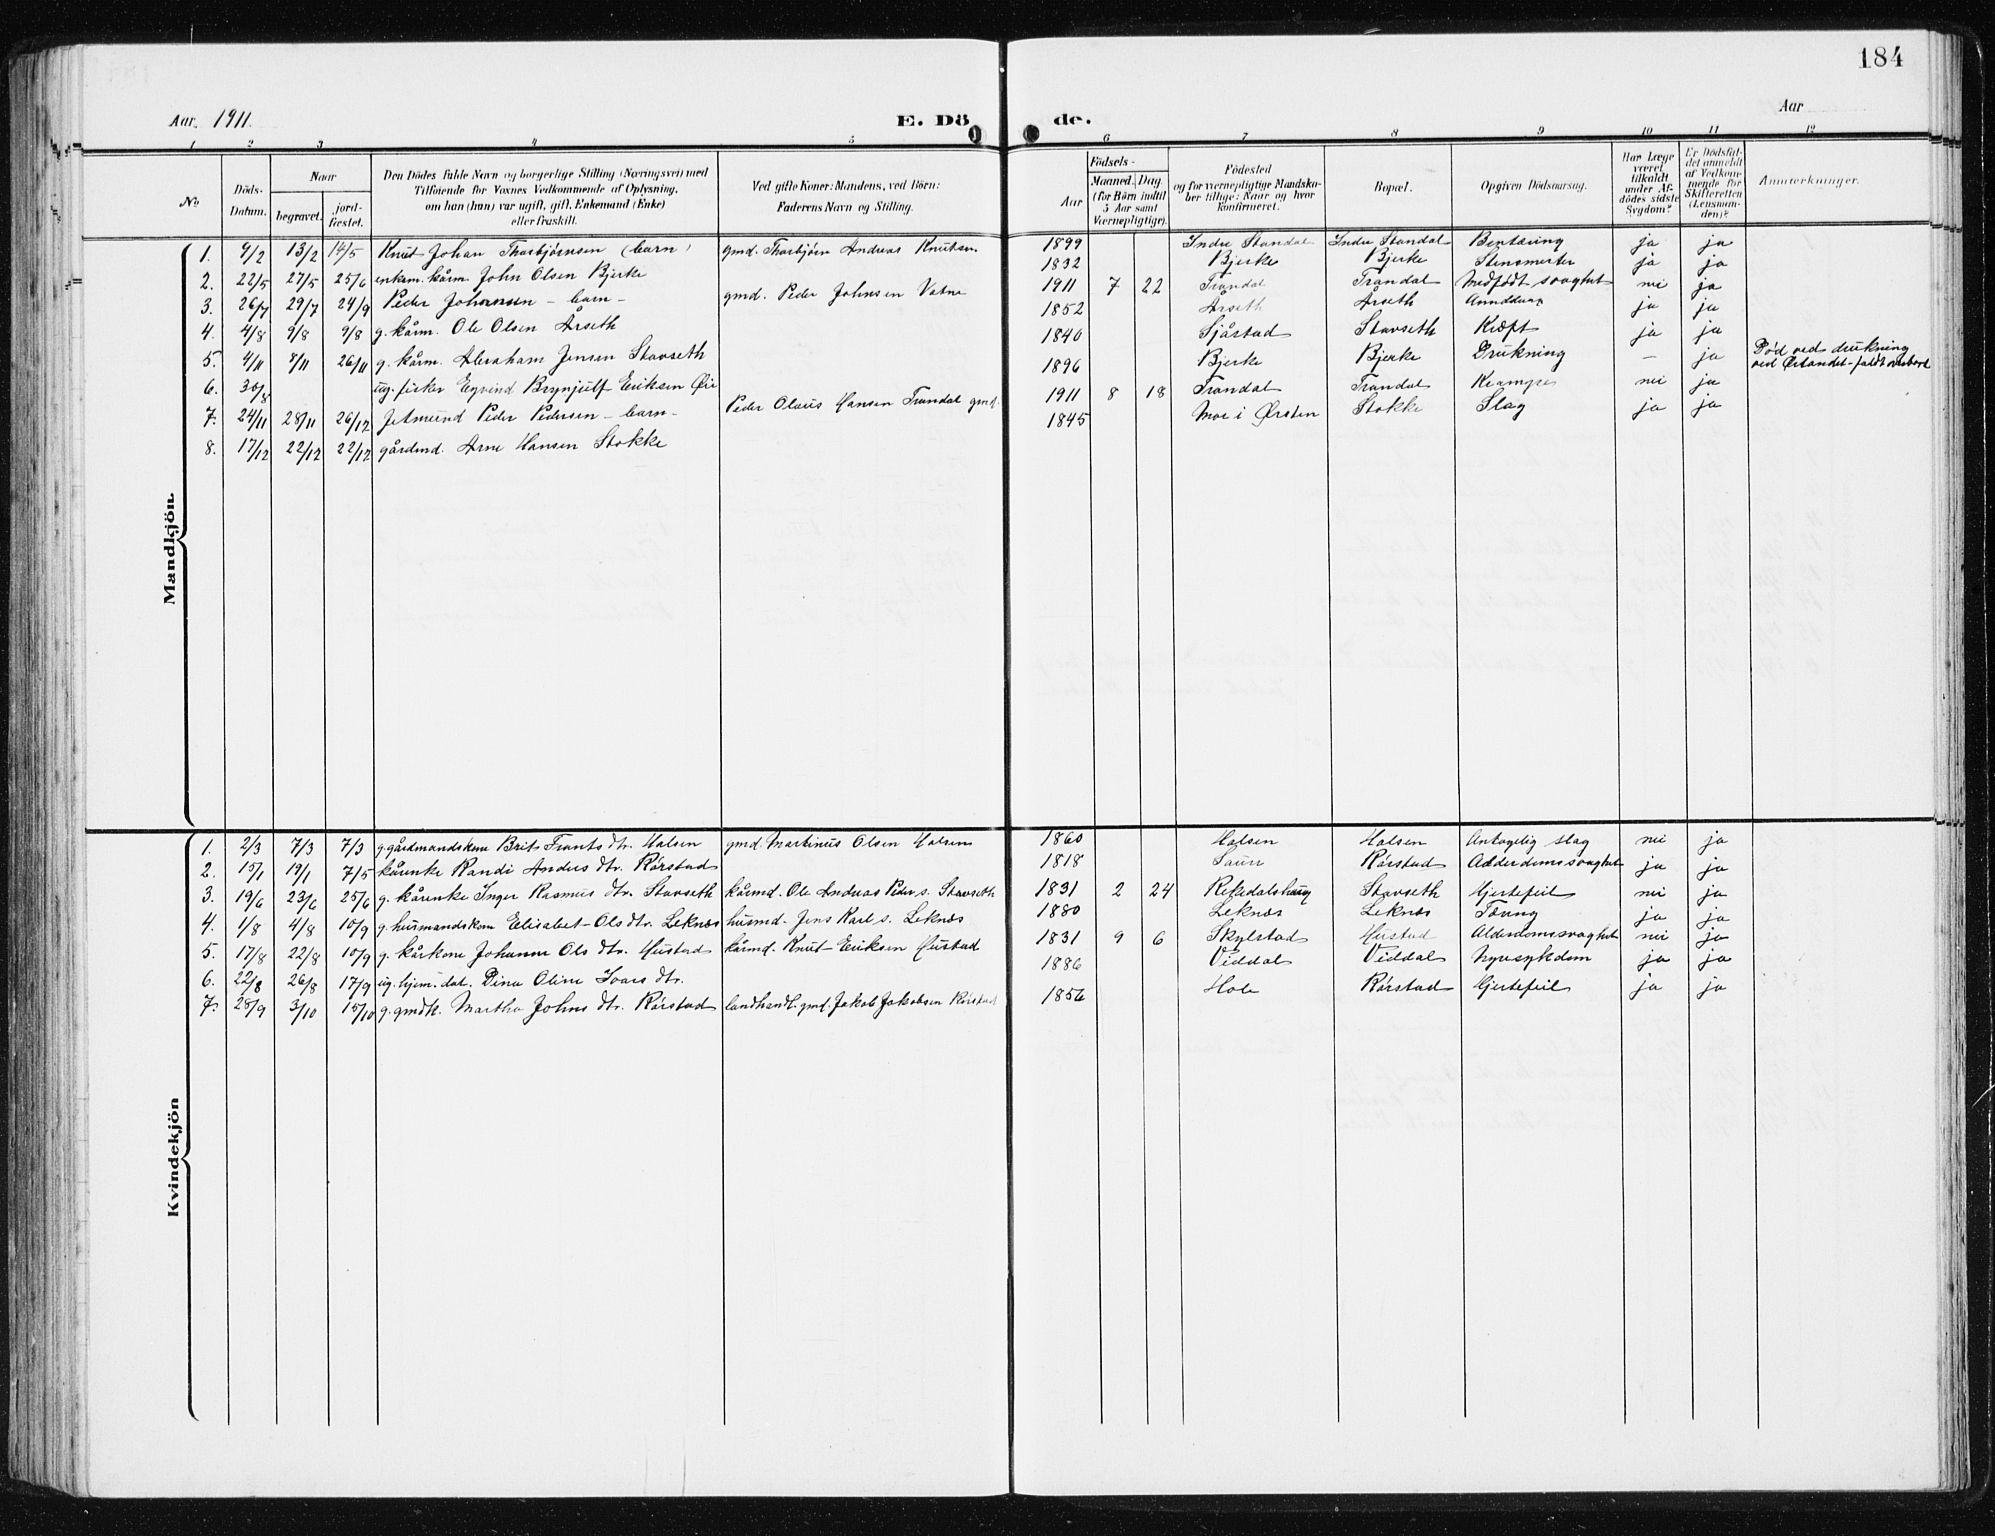 184
Aar. 1911.
E. Dö de.
Aar
1 2 3 4 5 6 7 8 9 10 11 12
No
Döds-Datum.
Naar
begravet.
jord-fæstet.
Den Dödes fulde Navn og borgerlige Stilling (Næringsvei) med
Tilföiende for Voxnes Vedkommende af Oplysning,
om han (hun) var ugift, gift, Enkemand (Enke)
eller fraskilt.
Ved gifte Koner: Mandens, ved Börn:
Faderens Navn og Stilling.
Födsels-
Aar
Maaned. Dag
(for Börn indtil
5 Aar samt
Værnepligtige).
Födested
og for værnepligtige Mandska-
ber tillige: Naar og hvor
konfirmeret.
Bopæl.
Opgiven Dödsaarsag.
Har Læge
været
tilkaldt
under Af-
dödes sidste
Sygdom?
Er Dödsfal-
det anmeldt
af Vedkom-
mende for
Skifteretten
(Lensman-
den)?
Anmerkninger.
Mandkjön.
1. 9/2 13/2 14/5 Knut Johan Thorbjørnsen (barn) gmd. Thorbjørn Andreas Knutsen 1899 Indre Standal Indre Standal Bentæring ja ja
2. 22/5 27/5 25/6 enkem. kårm. John Olsen Bjerke 1832 Bjerke Bjerke Stensmerter ja ja
3. 26/7 29/7 24/9 Peder Johansen - barn - gmd. Peder Johnsen Vatne 1911 7 22 Trandal Trandal Medfødt svaghet nei ja
4. 4/8 9/8 9/8 g. kårm. Ole Olsen Årseth 1852 Årseth Årseth ja ja
5. 4/11 8/11 26/11 g. kårm. Abraham Jensen Stavseth 1840 Sjåstad Stavseth Kræft ja ja
6. 30/8 ug. fisker Eyvind Brynjulf Eriksen Øie 1896 Bjerke Bjerke Drukning - ja Død ved drukning
ved Ørlandet - faldt overbord
7. 24/11 28/11 26/12 Jetmund Peder Pedersen - barn - Peder Olaus Hansen Trandal gmd. 1911 8 18 Trandal Trandal Krampe nei ja
8. 17/12 22/12 22/12 gårdmd. Arne Hansen Stokke 1845 Moe i Ørsten Stokke Slag ja ja
Kvindekjön
1. 2/3 7/3 7/3 g. gårdmandskone Brit Frants dtr. Holsen gmd. Martinus Olsen Holsen 1860 Holsen Holsen Antagelig slag nei ja
2. 15/1 19/1 7/5 kårenke Randi Anders dtr. Rørstad 1818 Rørstad Alderdomssvaghet ja ja
3. 19/6 23/6 25/6 g. kårenke Inger Rasmus dtr. Stavseth kårmd. Ole Andreas Peder s. Stavseth 1831 2 24 Rekkedalshaug Stavseth Hjertefeil nei ja
4. 1/8 4/8 10/9 g. husmandskone Elisabet Ols dtr. Leknæs husmd. Jens Karl s. Leknæs 1880 Leknæs Leknæs Tæring ja ja
5. 17/8 22/8 10/9 g. kårkone Johanne Ols dtr. Hustad kårmd. Knut Eriksen Hustad 1831 9 6 Skylstad Hustad Alderdomssvaghet nei ja
6. 22/8 26/8 17/9 ug. hjem. dat. Dina Oline Ivars dtr. 1886 Viddal Viddal Nyresykdom ja ja
7. 28/9 3/10 15/10 g. gmdk. Martha Johns dtr. Rørstad landhandl. gmd. Jakob Jakobsen Rørstad 1856 Hole Rørstad Hjertefeil ja ja